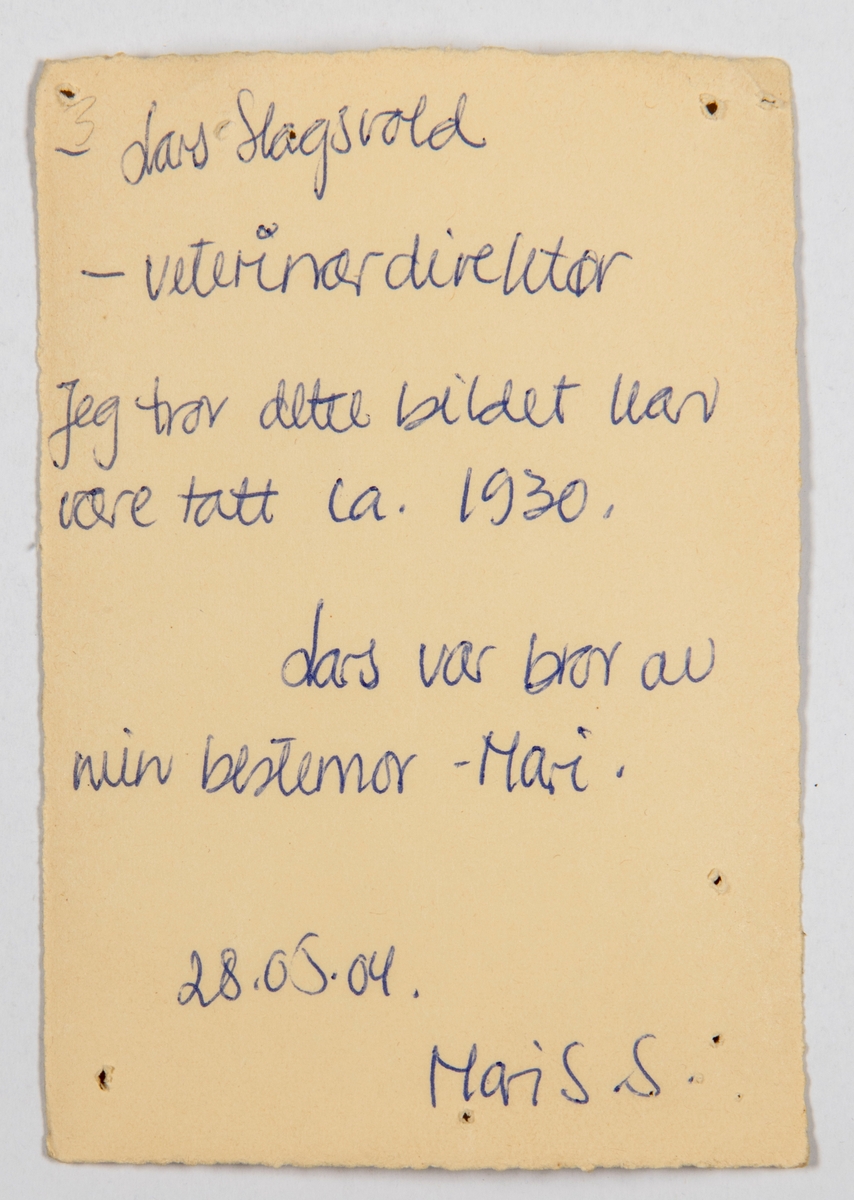 3
Lars Slagsvold
- veterinærdirektør
Jeg tror dette bildet kan
være tatt ca. 1930.
Lars var bror av
min bestemor - Mari.
28.05.04.
Mari S.S.